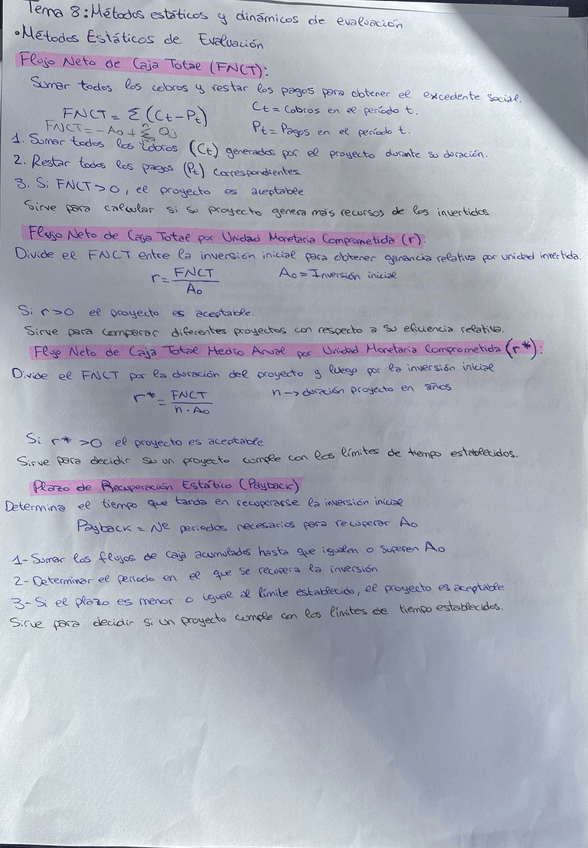 Tema 8: Métodos estáticos y dinámicos de evaluación
• Métodos Estáticos de Evaluación
Flujo Neto de Caja Total (FNCT):
Sumar todos los cobros y restar los pagos para obtener el excedente social.
FNCT = Σ (Ct - Pt)    Ct = Cobros en el período t.
FNCT = -A0 + Σ Qj    Pt = Pagos en el período t.
1. Sumar todos los cobros (Ct) generados por el proyecto durante su duración.
2. Restar todos los pagos (Pt) correspondientes
3. Si FNCT > 0, el proyecto es aceptable
Sirve para calcular si su proyecto genera más recursos de los invertidos
Flujo Neto de Caja Total por Unidad Monetaria Comprometida (r):
Divide el FNCT entre la inversión inicial para obtener ganancia relativa por unidad invertida.
r = FNCT / A0    A0 = Inversión inicial
Si r > 0 el proyecto es aceptable.
Sirve para comparar diferentes proyectos con respecto a su eficiencia relativa.
Flujo Neto de Caja Total Medio Anual por Unidad Monetaria Comprometida (r*):
Divide el FNCT por la duración del proyecto y luego por la inversión inicial
r* = FNCT / n · A0    n → duración proyecto en años
Si r* > 0 el proyecto es aceptable
Sirve para decidir si un proyecto cumple con los límites de tiempo establecidos.
Plazo de Recuperación Estático (Payback)
Determina el tiempo que tarda en recuperarse la inversión inicial
Payback = Nº periodos necesarios para recuperar A0
1- Sumar los flujos de caja acumulados hasta que igualen o superen A0
2- Determinar el periodo en el que se recupera la inversión
3- Si el plazo es menor o igual al límite establecido, el proyecto es aceptable
Sirve para decidir si un proyecto cumple con los límites de tiempo establecidos.